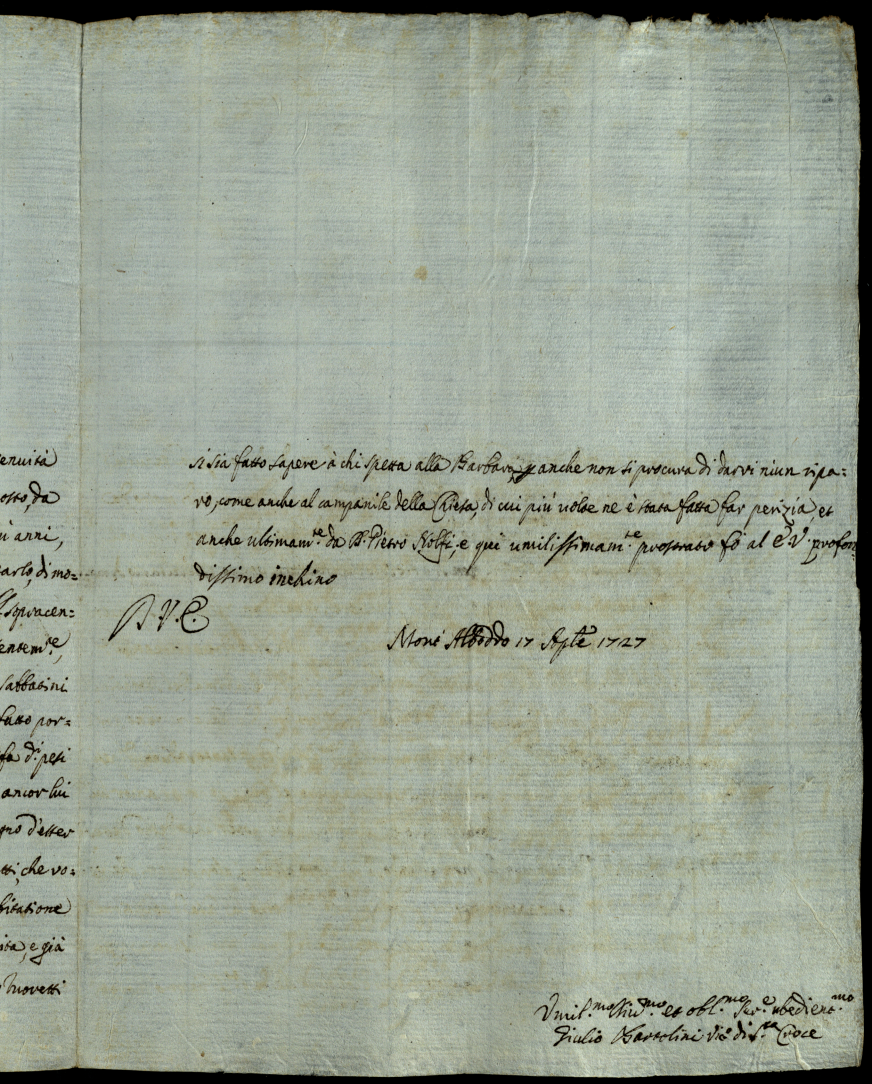 enuità
osto, da
ù anni,
carlo, di mo=
sopracen=
entem.te,
Sabbatini
fatto por=
fa d.i pesi
ancor lui
gno d'esser
tti, che vo=
bitatione
ita, e già
Nuovetti
si sia fatto sapere à chi spetta alla Barbara, anche non si procura di darvi niun ripa=
ro, come anche al campanile della Chiesa, di cui più volte ne è stata fatta far perizia, et
anche ultimam.te da P. Pietro e qui umilissimam.te prostrato fò al E V. profon
dissimo inchino
D. V. E.
Mont Alboddo 17 Sett.e 1727
Umil.mo Div.mo et obl.mo Ser.e obedient.mo
Giulio Bartolini Vic.o di S.ta Croce